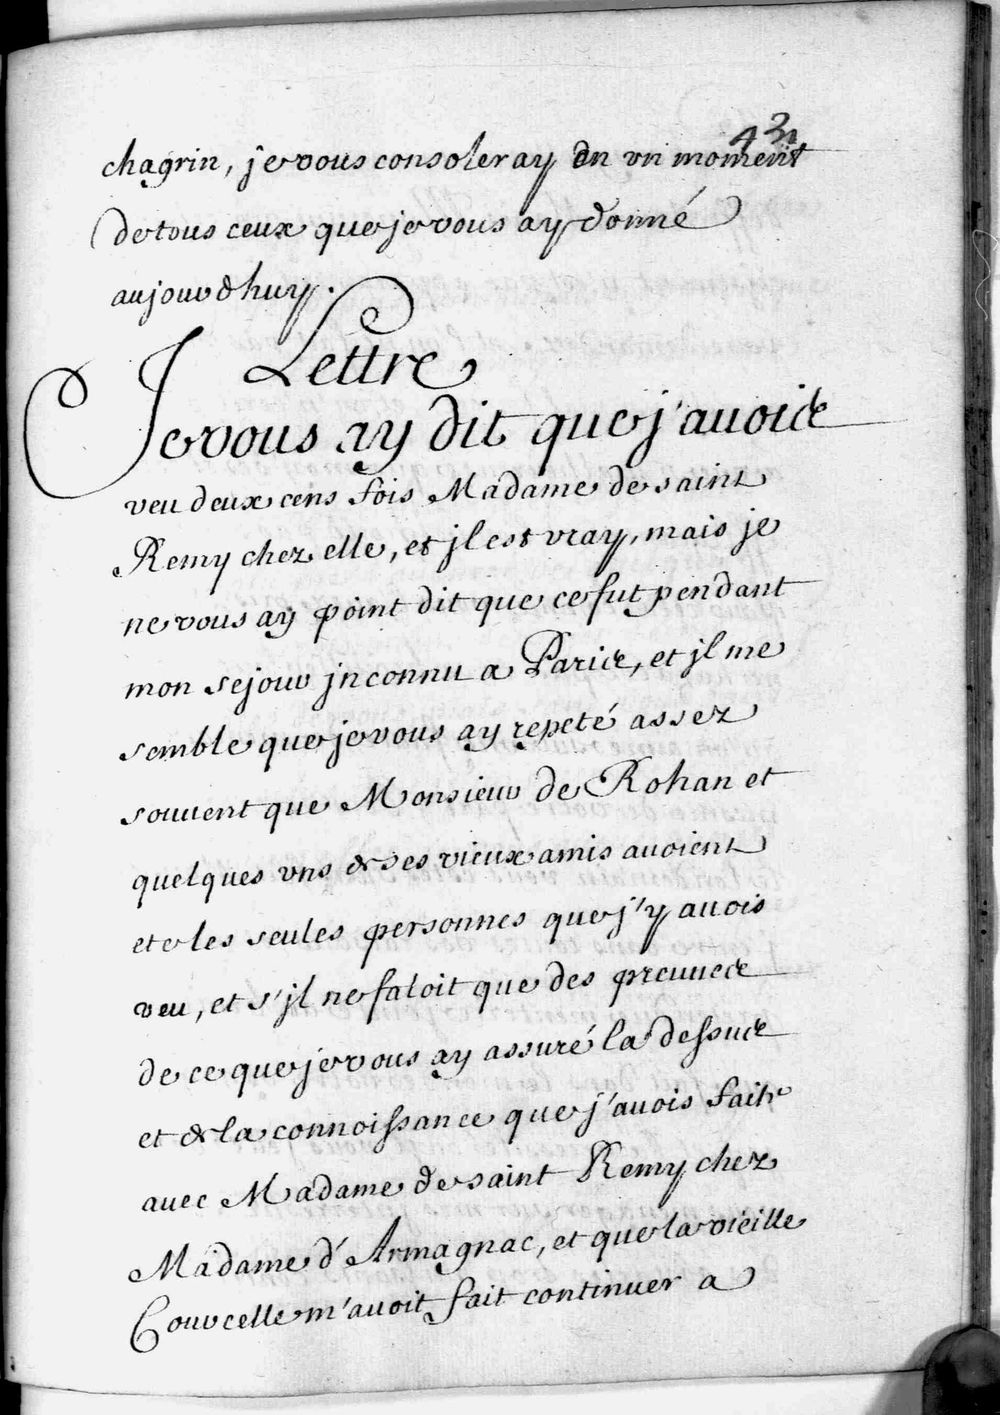 43
chagrin, je vous consoleray en un moment
de tous ceux que je vous ay donné
aujourdhuy.
Lettre
Je vous ay dit que j'avois
veu deux cens fois Madame de saint
Remy chez elle, et jl est vray, mais je
ne vous ay point dit que ce fut pendant
mon sejour jnconnu a Paris, et jl me
semble que je vous ay repeté assez
souvent que Monsieur de Rohan et
quelques vns de ses vieux amis avoient
ete les seules personnes que j'y avois
veu, et s'jl ne faloit que des preuves
de ce que je vous ay assuré la dessus
et de la connoissance que j'avois faite
avec Madame de saint Remy chez
Madame d'Armagnac, et que la vieille
Courcelle m'avoit fait continuer a